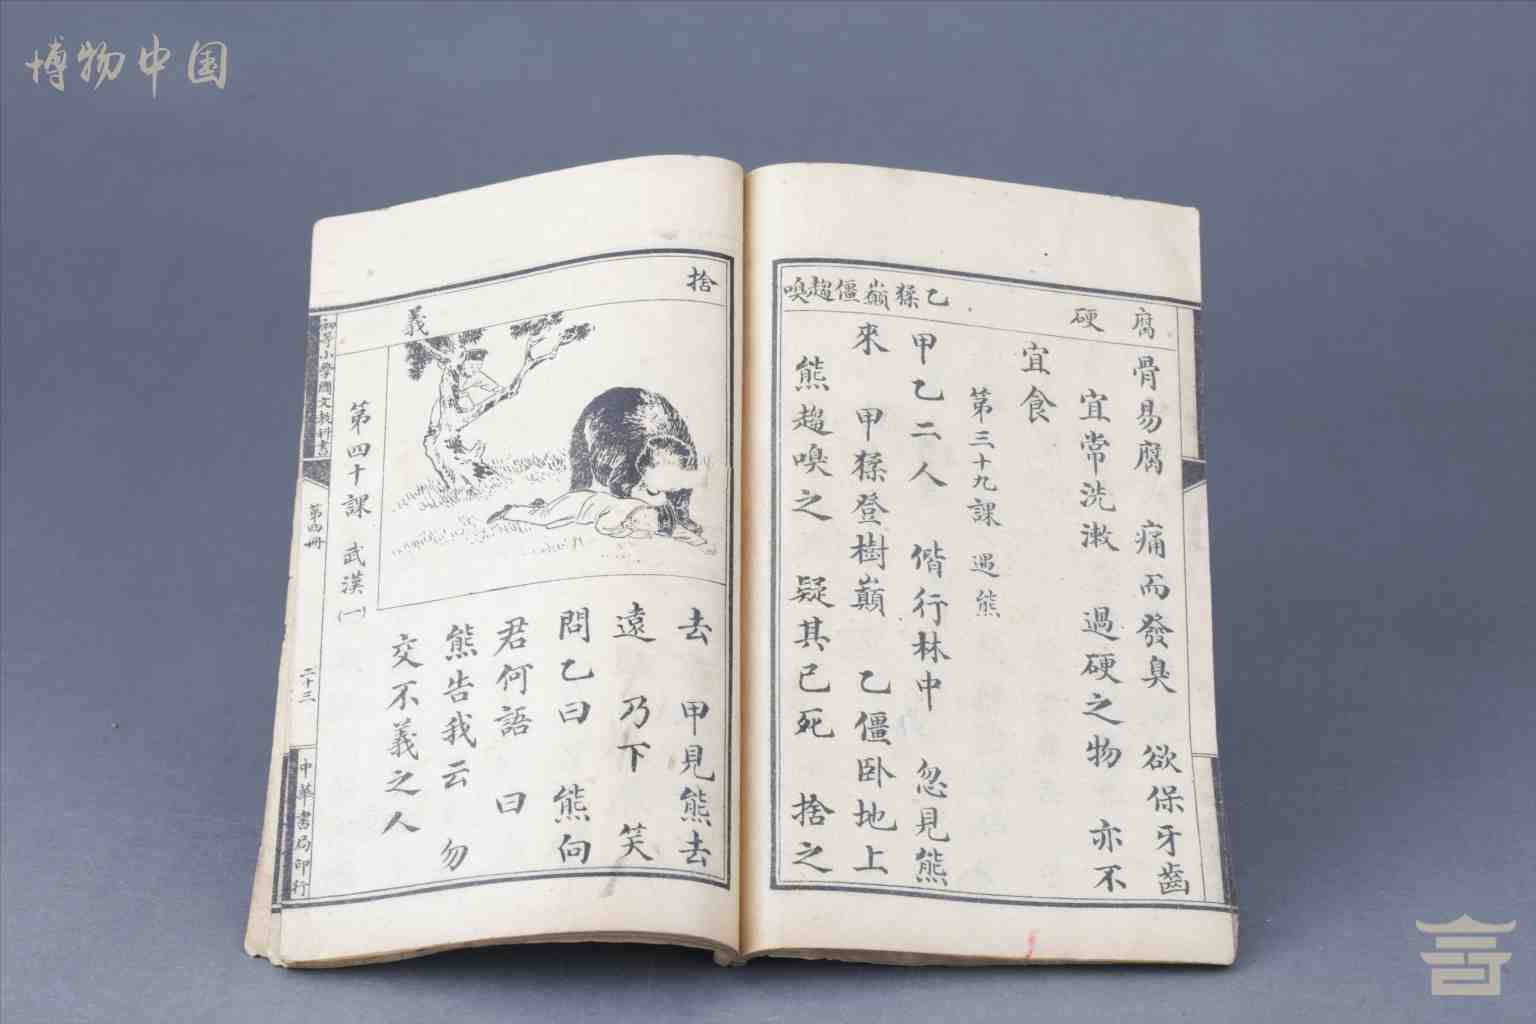 博物中国
腐
硬
骨易腐　痛而發臭　欲保牙齒
宜常洗漱　過硬之物　亦不
宜食
第三十九課　遇熊
乙猱巔僵趨嗅
甲乙二人　偕行林中　忽見熊
來　甲猱登樹巔　乙僵卧地上
熊趨嗅之　疑其已死　捨之
捨
義
去　甲見熊去
遠　乃下　笑
問乙曰　熊向
君何語　曰
熊告我云　勿
交不義之人
第四十課　武漢(一)
初等小學國文教科書
第四冊
二十三
中華書局印行